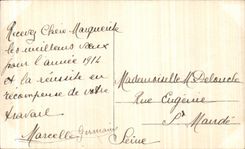 Recevez Chère Marguerite
les meilleurs vœux
pour l'année 1914
et la réussite en
récompense de votre
travail
Marcelle Germain
Mademoiselle M. Delouche
Rue Eugénie
St Mandé
Seine